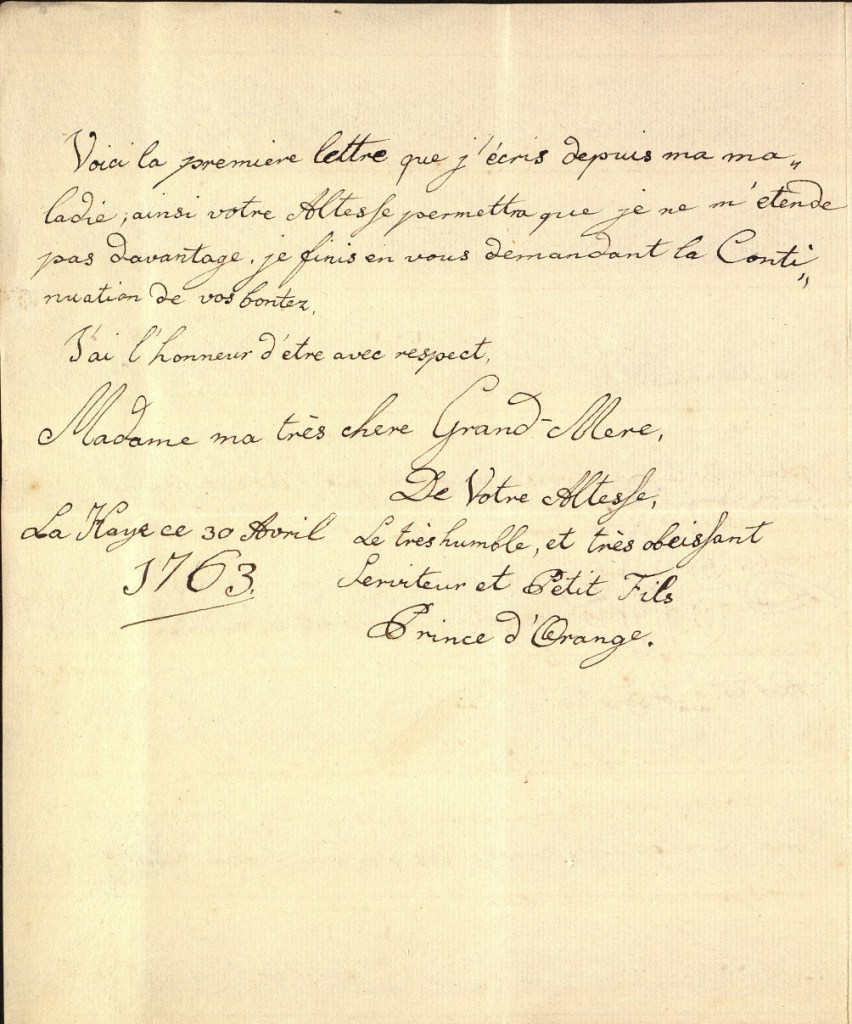 Voici la premiere lettre que j'écris depuis ma ma„
ladie, ainsi votre Altesse permettra que je ne m'étende
pas davantage. je finis en vous demandant la Conti„
nuation de vos bontez.
J'ai l'honneur d'étre avec respect,
Madame ma très chere Grand-Mere,
De Votre Altesse,
La Haye ce 30 Avril
1763.
Le très humble, et très obeissant
Serviteur et Petit Fils
Prince d'Orange.